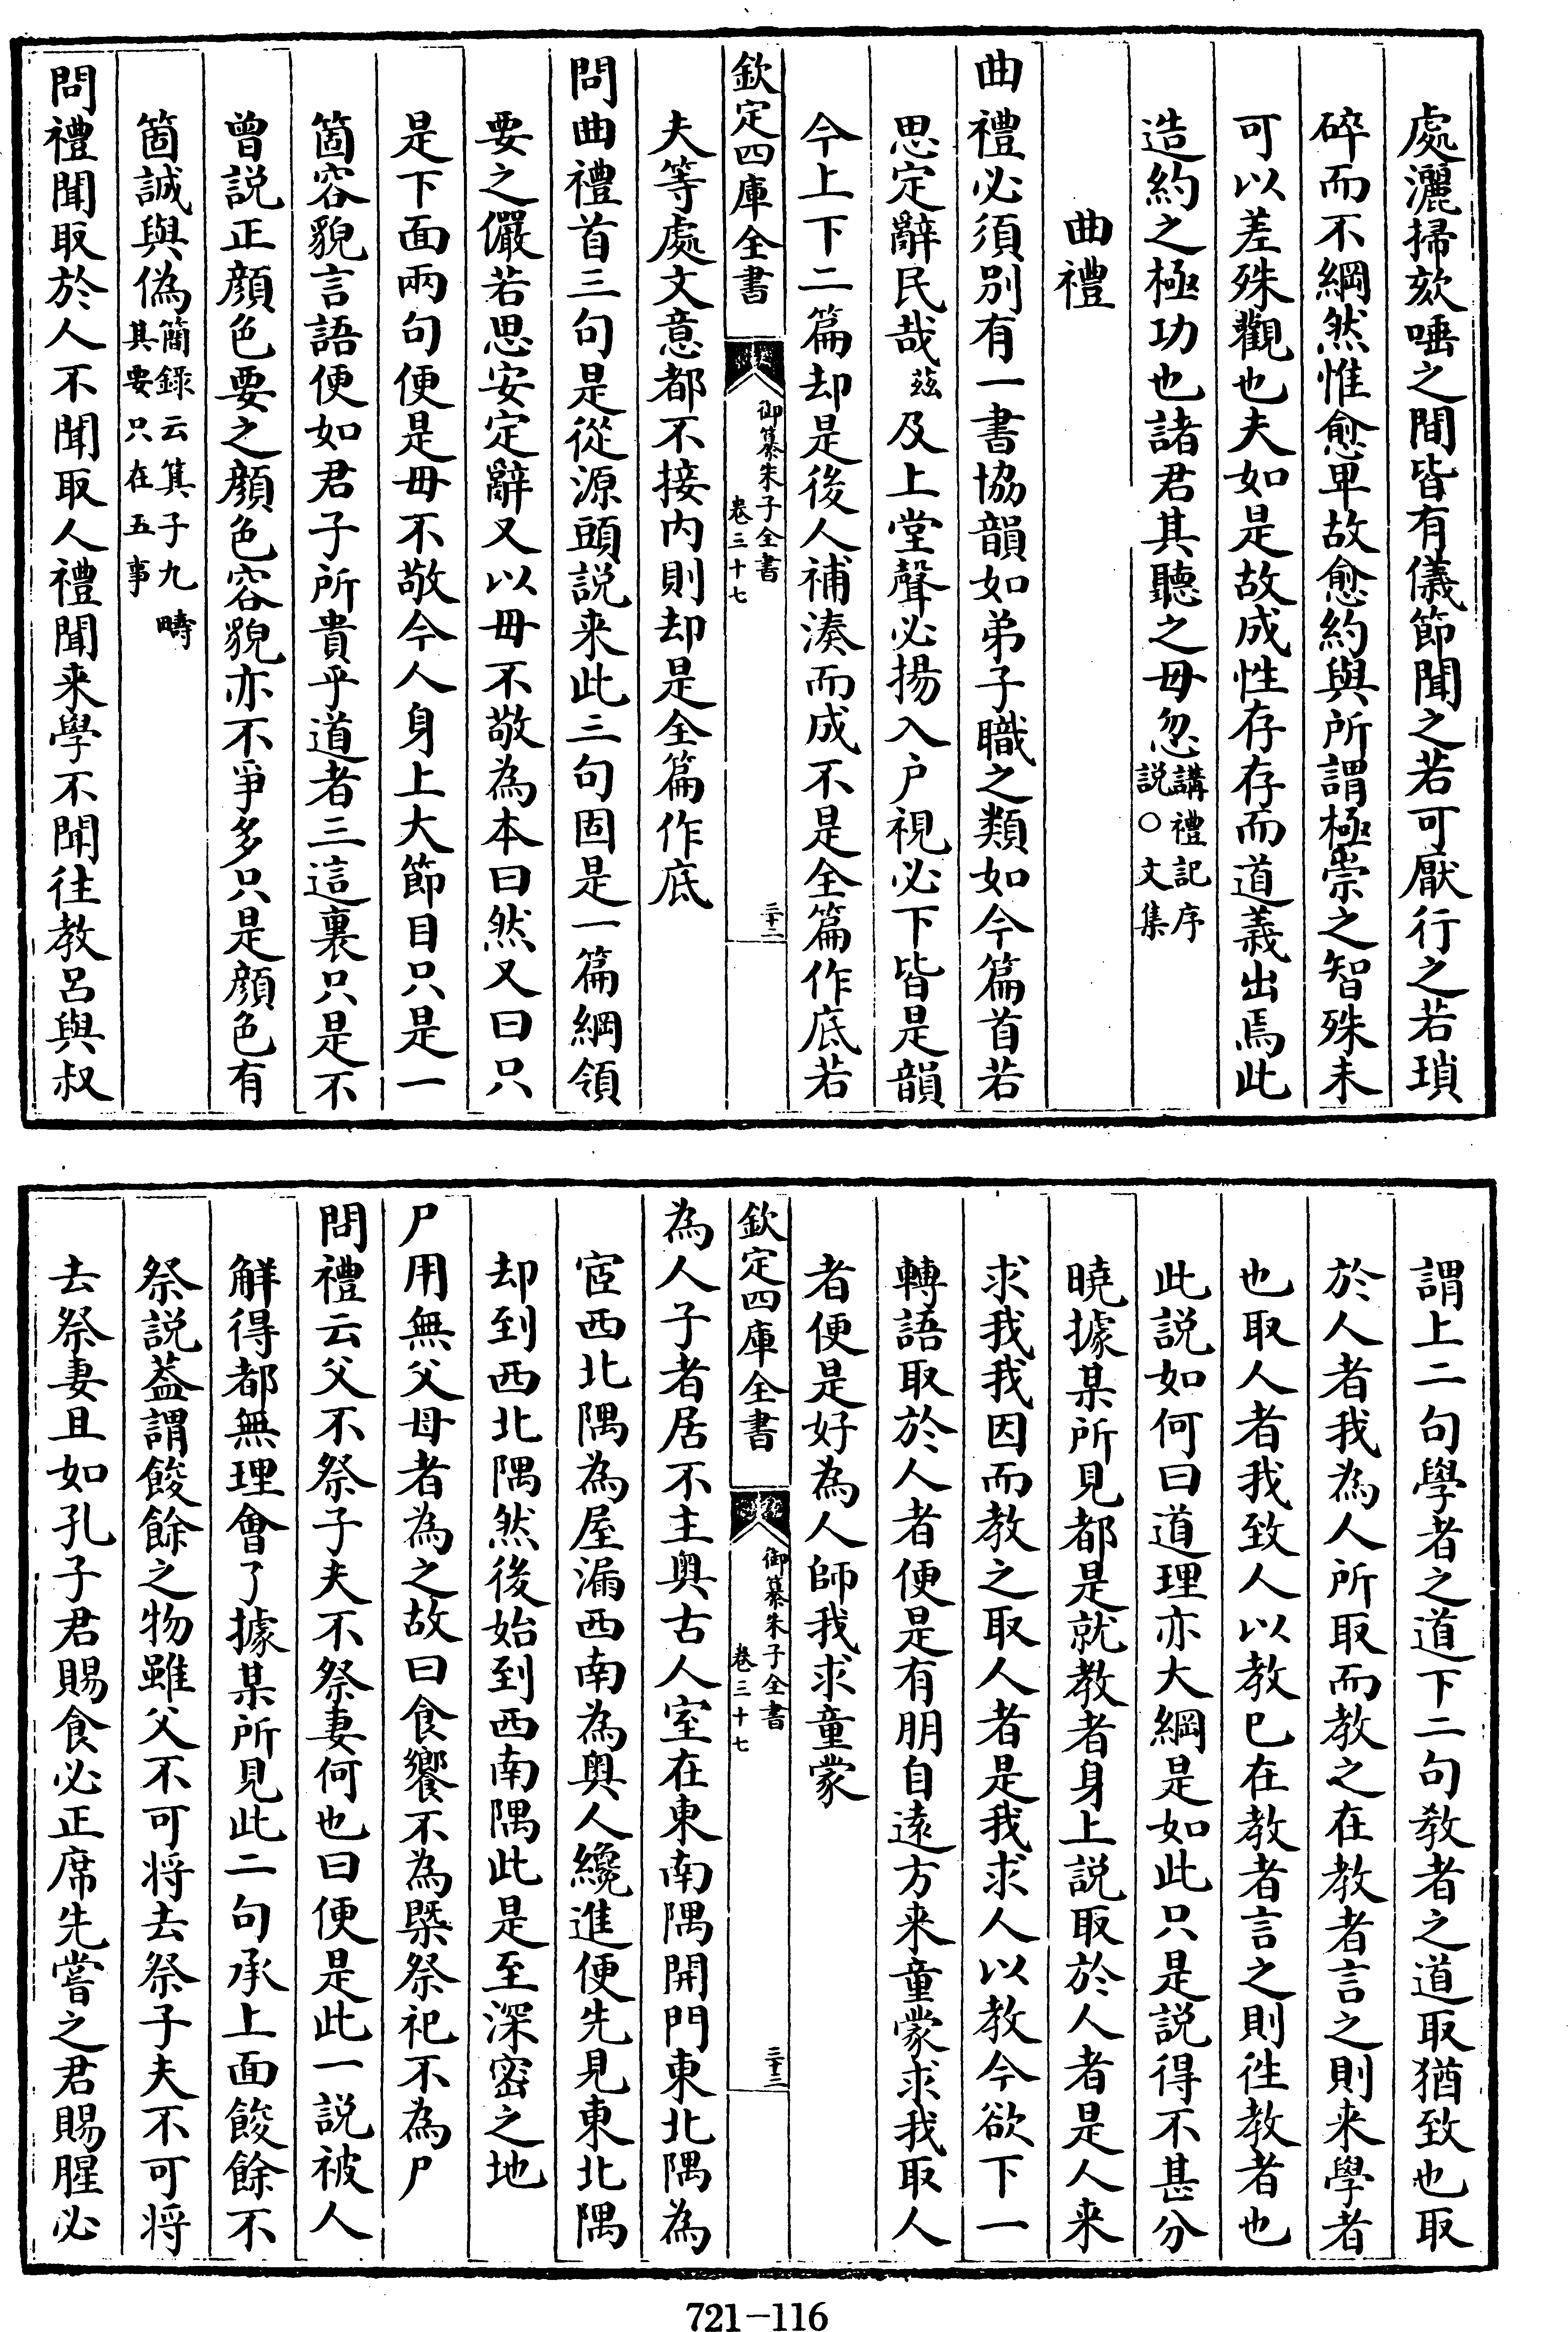 處灑掃欬唾之間皆有儀節聞之若可厭行之若瑣
碎而不綱然惟愈卑故愈約與所謂極崇之智殊未
可以差殊觀也夫如是故成性存存而道義出焉此
造約之極功也諸君其聽之毋忽講禮記序説○文集
曲禮
曲禮必須別有一書協韻如弟子職之類如今篇首若
思定辭民哉茲及上堂聲必揚入户視必下皆是韻
今上下二篇却是後人補湊而成不是全篇作底若
欽定四庫全書
御纂朱子全書
卷三十七
三十二
夫等處文意都不接内則却是全篇作底
問曲禮首三句是從源頭説来此三句固是一篇綱領
要之儼若思安定辭又以毋不敬為本曰然又曰只
是下面兩句便是毋不敬今人身上大節目只是一
箇容貌言語便如君子所貴乎道者三這裏只是不
曾説正顔色要之顔色容貌亦不爭多只是顔色有
箇誠與偽簡録云箕子九疇其要只在五事
問禮聞取於人不聞取人禮聞来學不聞往教呂與叔
謂上二句學者之道下二句教者之道取猶致也取
於人者我為人所取而教之在教者言之則来學者
也取人者我致人以教已在教者言之則徃教者也
此説如何曰道理亦大綱是如此只是説得不甚分
曉據某所見都是就教者身上説取於人者是人来
求我我因而教之取人者是我求人以教今欲下一
轉語取於人者便是有朋自遠方来童蒙求我取人
者便是好為人師我求童蒙
欽定四庫全書
御纂朱子全書
卷三十七
三十三
為人子者居不主奥古人室在東南隅開門東北隅為
宧西北隅為屋漏西南為奥人纔進便先見東北隅
却到西北隅然後始到西南隅此是至深密之地
尸用無父母者為之故曰食饗不為槩祭祀不為尸
問禮云父不祭子夫不祭妻何也曰便是此一説被人
解得都無理會了據某所見此二句承上面餕餘不
祭説葢謂餕餘之物雖父不可将去祭子夫不可将
去祭妻且如孔子君賜食必正席先嘗之君賜腥必
721-116